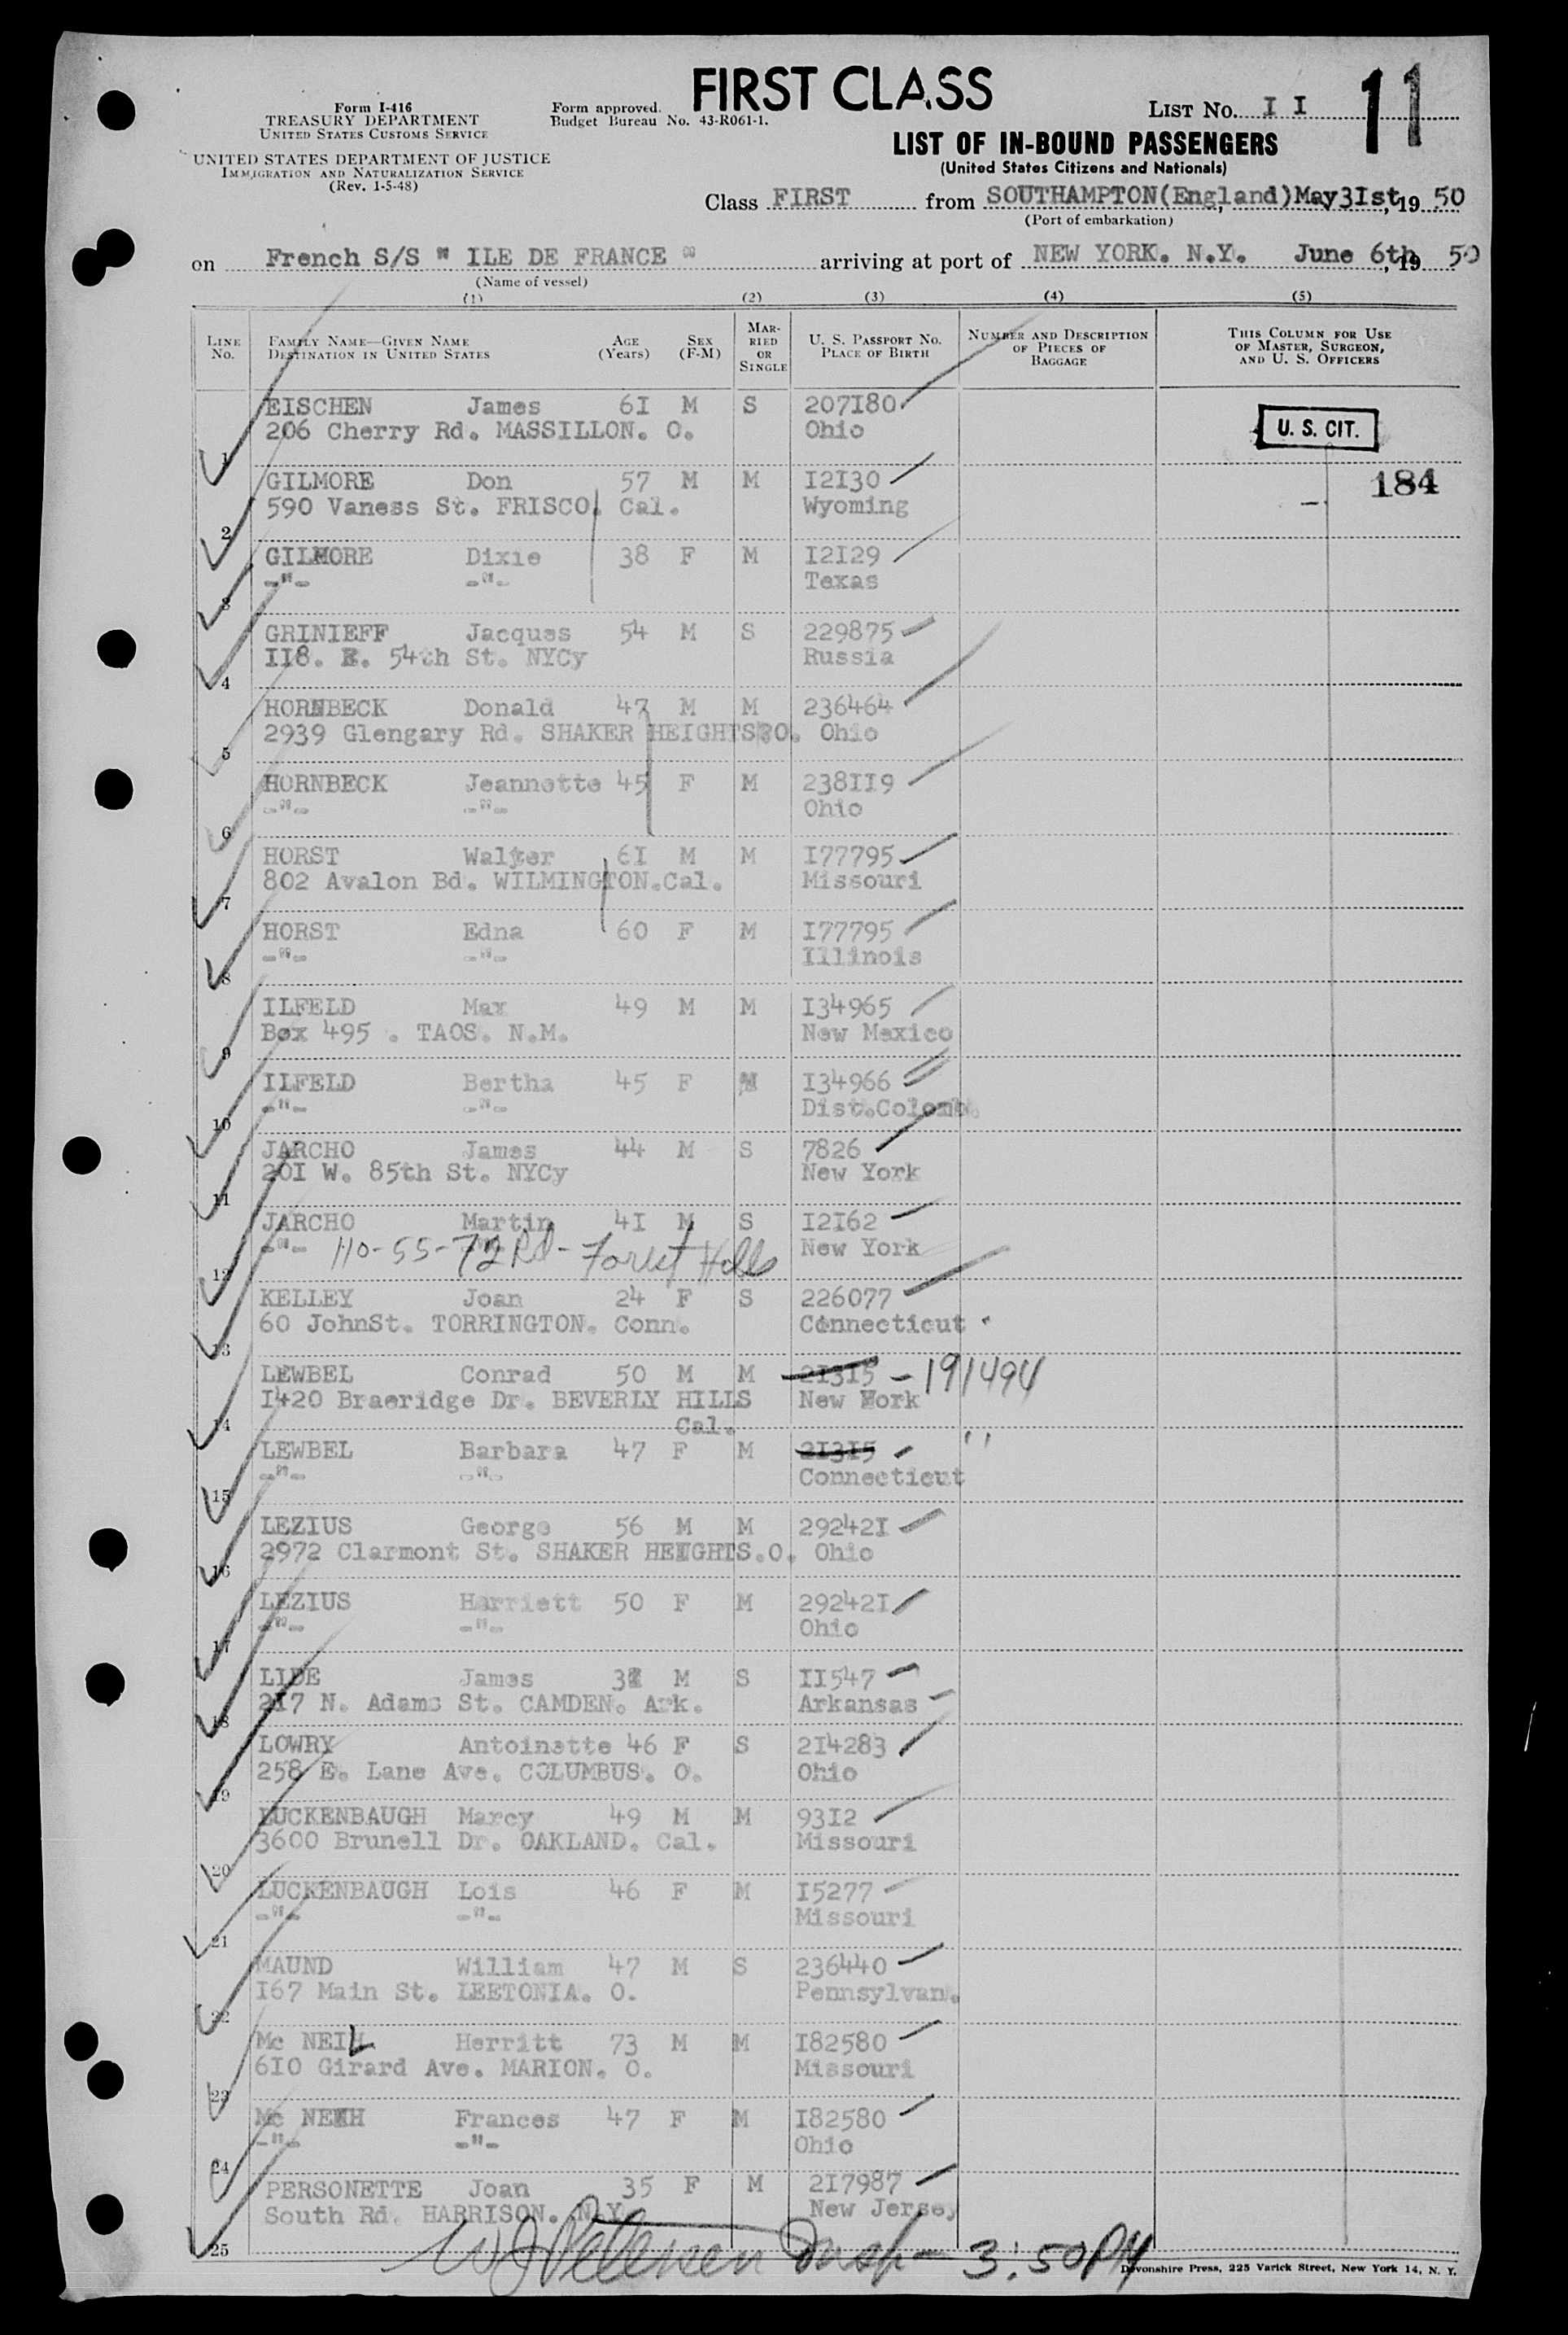 Form I-416
TREASURY DEPARTMENT
UNITED STATES CUSTOMS SERVICE
UNITED STATES DEPARTMENT OF JUSTICE
IMMIGRATION AND NATURALIZATION SERVICE
(Rev. 1-5-48)
Form approved.
Budget Bureau No. 43-R061-1.
FIRST CLASS
LIST No. II
11
LIST OF IN-BOUND PASSENGERS
(United States Citizens and Nationals)
Class FIRST from SOUTHAMPTON(England)May3Ist,19 50
(Port of embarkation)
on French S/S " ILE DE FRANCE " arriving at port of NEW YORK. N.Y. June 6th, 19 50
(Name of vessel)
(1) (2) (3) (4) (5)
LINE No. FAMILY NAME—GIVEN NAME DESTINATION IN UNITED STATES AGE (Years) SEX (F-M) MARRIED OR SINGLE U. S. PASSPORT NO. PLACE OF BIRTH NUMBER AND DESCRIPTION OF PIECES OF BAGGAGE THIS COLUMN FOR USE OF MASTER, SURGEON, AND U. S. OFFICERS
EISCHEN James 6I M S 207I80
1 206 Cherry Rd. MASSILLON. O. Ohio U. S. CIT.
GILMORE Don 57 M M I2I30 184
2 590 Vaness St. FRISCO. Cal. Wyoming
GILMORE Dixie 38 F M I2I29
3 -"- -"- Texas
GRINIEFF Jacques 54 M S 229875
4 II8. E. 54th St. NYCy Russia
HORNBECK Donald 47 M M 236464
5 2939 Glengary Rd. SHAKER HEIGHTS O. Ohio
HORNBECK Jeannette 45 F M 238II9
6 -"- -"- Ohio
HORST Walter 6I M M I77795
7 802 Avalon Bd. WILMINGTON.Cal. Missouri
HORST Edna 60 F M I77795
8 -"- -"- Illinois
ILFELD Max 49 M M I34965
9 Box 495 . TAOS. N.M. New Mexico
ILFELD Bertha 45 F M I34966
10 -"- -"- Dist.Colomb.
JARCHO James 44 M S 7826
11 20I W. 85th St. NYCy New York
JARCHO Martin 4I M S I2I62
12 -"- 110-55-72 Rd - Forest Hills New York
KELLEY Joan 24 F S 226077
13 60 JohnSt. TORRINGTON. Conn. Connecticut
LEWBEL Conrad 50 M M 2I3I5 - 191494
14 I420 Braeridge Dr. BEVERLY HILLS New York
Cal.
LEWBEL Barbara 47 F M 2I3I5 "
15 -"- -"- Connecticut
LEZIUS George 56 M M 29242I
16 2972 Clarmont St. SHAKER HEIGHTS.O. Ohio
LEZIUS Harriett 50 F M 29242I
17 -"- -"- Ohio
LIDE James M S II547
18 217 N. Adams St. CAMDEN. Ark. Arkansas
LOWRY Antoinette 46 F S 2I4283
19 258 E. Lane Ave. COLUMBUS. O. Ohio
LUCKENBAUGH Marcy 49 M M 93I2
20 3600 Brunell Dr. OAKLAND. Cal. Missouri
LUCKENBAUGH Lois 46 F M I5277
21 -"- -"- Missouri
MAUND William 47 M S 236440
22 I67 Main St. LEETONIA. O. Pennsylvan.
Mc NEIL Herritt 73 M M I82580
23 6I0 Girard Ave. MARION. O. Missouri
Mc NEIH Frances 47 F M I82580
24 -"- -"- Ohio
PERSONETTE Joan 35 F M 2I7987
South Rd. HARRISON. N.Y. New Jersey
25 WJ Petersen Insp - 3:50 PM
Devonshire Press, 225 Varick Street, New York 14, N. Y.